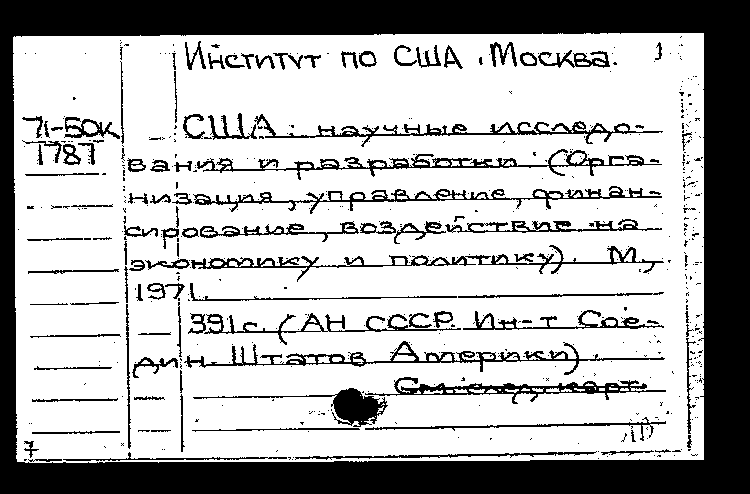 Институт по США. Москва.
71-50к
1787
США: научные исследо-
вания и разработки (Орга-
низация, управление, финан-
сирование, воздействие на
экономику и политику). М.,
1971.
391с. (АН СССР. Ин-т Сое-
дин. Штатов Америки).
См. след. карт.
7